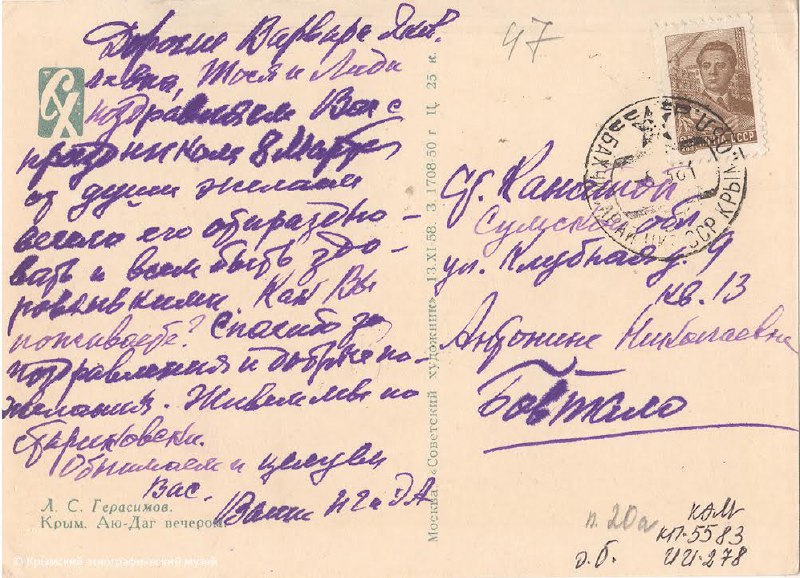 Дорогие Варвара
Тося и Лида
поздравляем Вас с
праздником 8 Марта
от души желаем
весело его отпраздно-
вать и всем быть здо-
ровенькими. Как Вы
поживаете? Спасибо за
поздравления и добрые по-
желания. Живем мы по
стариковски.
Обнимаем и целуем
Вас.
Ваши
Л. С. Герасимов.
Крым. Аю-Даг вечером.
© Крымский этнографический музей
Москва. «Советский художник» 13.XI.58. З. 1708-50 г Ц. 25 к.
СХ
47
СССР
БАХЧИСАРАЙ КРЫМ
Сумской обл
ул. Клубная д. 9
кв. 13
Антонине Николаевне
Бовтало
п. 20а
о.б.
КЭМ
КП-5583
ИИ-278